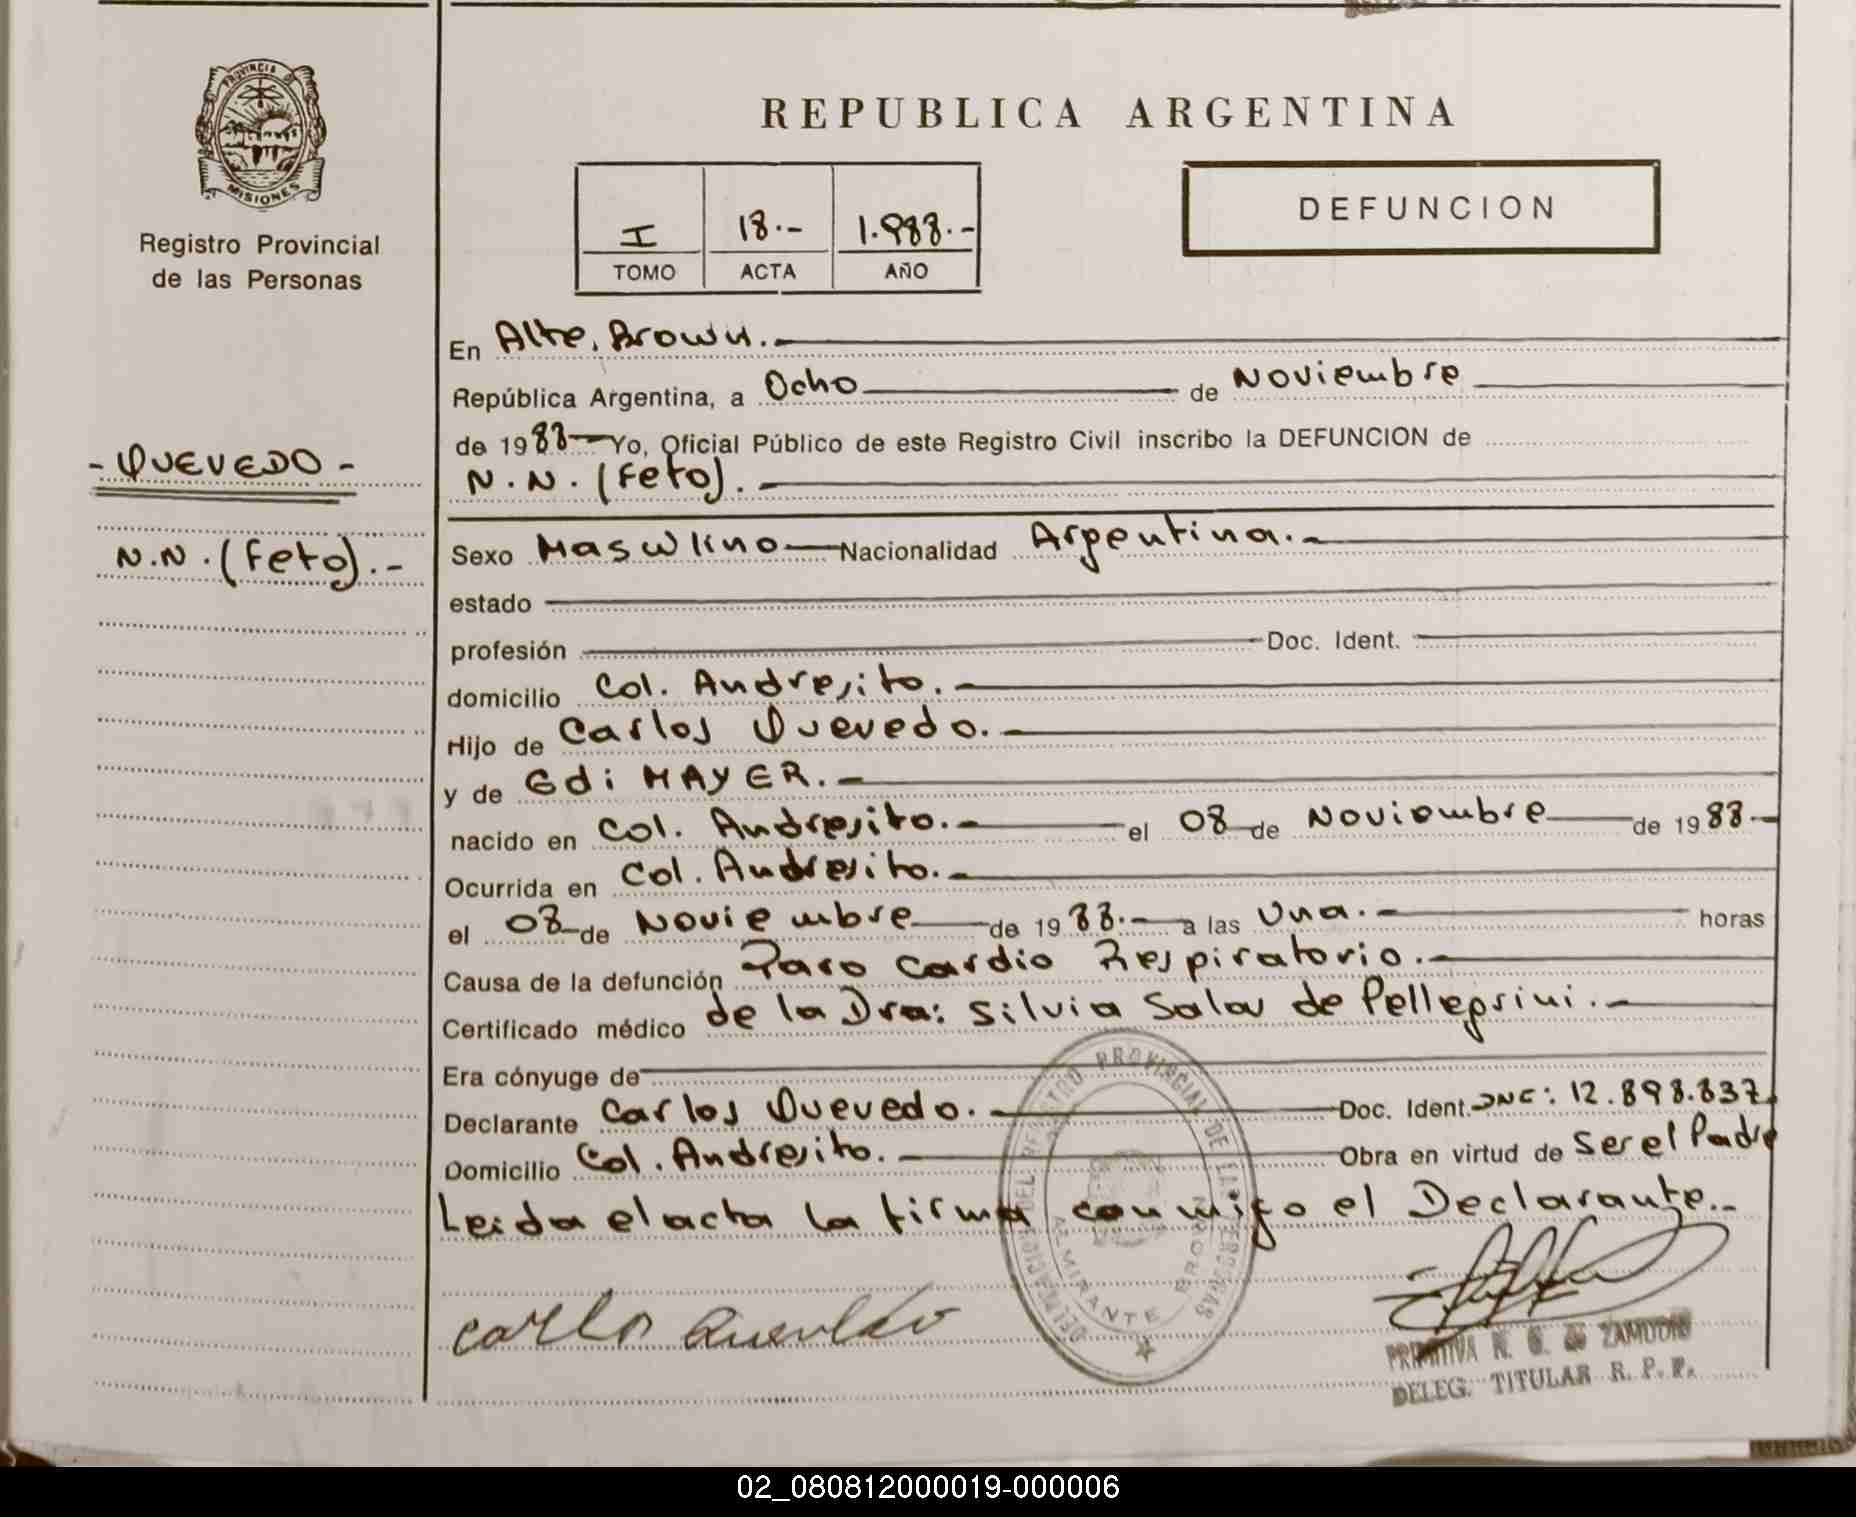 PROVINCIA DE
MISIONES
Registro Provincial
de las Personas
- QUEVEDO -
N.N. (Feto).-
REPUBLICA ARGENTINA
I 18.- 1.988.-
TOMO ACTA AÑO
DEFUNCION
En Alte. Brown.-
República Argentina, a Ocho de Noviembre
de 1988 Yo, Oficial Público de este Registro Civil inscribo la DEFUNCION de
N.N. (Feto).-
Sexo Masculino Nacionalidad Argentina.-
estado
profesión Doc. Ident.
domicilio Col. Andresito.-
Hijo de Carlos Quevedo.-
y de Edi MAYER.-
nacido en Col. Andresito.- el 08 de Noviembre de 1988.-
Ocurrida en Col. Andresito.-
el 08 de Noviembre de 1988.- a las Una.- horas
Causa de la defunción Paro Cardio Respiratorio.-
Certificado médico de la Dra: Silvia Salav de Pellegrini.-
Era cónyuge de
Declarante Carlos Quevedo.- Doc. Ident. DNE: 12.898.837
Domicilio Col. Andresito.- Obra en virtud de Ser el Padre
Leida el acta la firma conmigo el Declarante.-
DELEGACION DEL REGISTRO PROVINCIAL DE LAS PERSONAS
ALMIRANTE BROWN
Carlos Quevedo
DE ZAMUDIO
DELEG. TITULAR R. P. P.
02_080812000019-000006